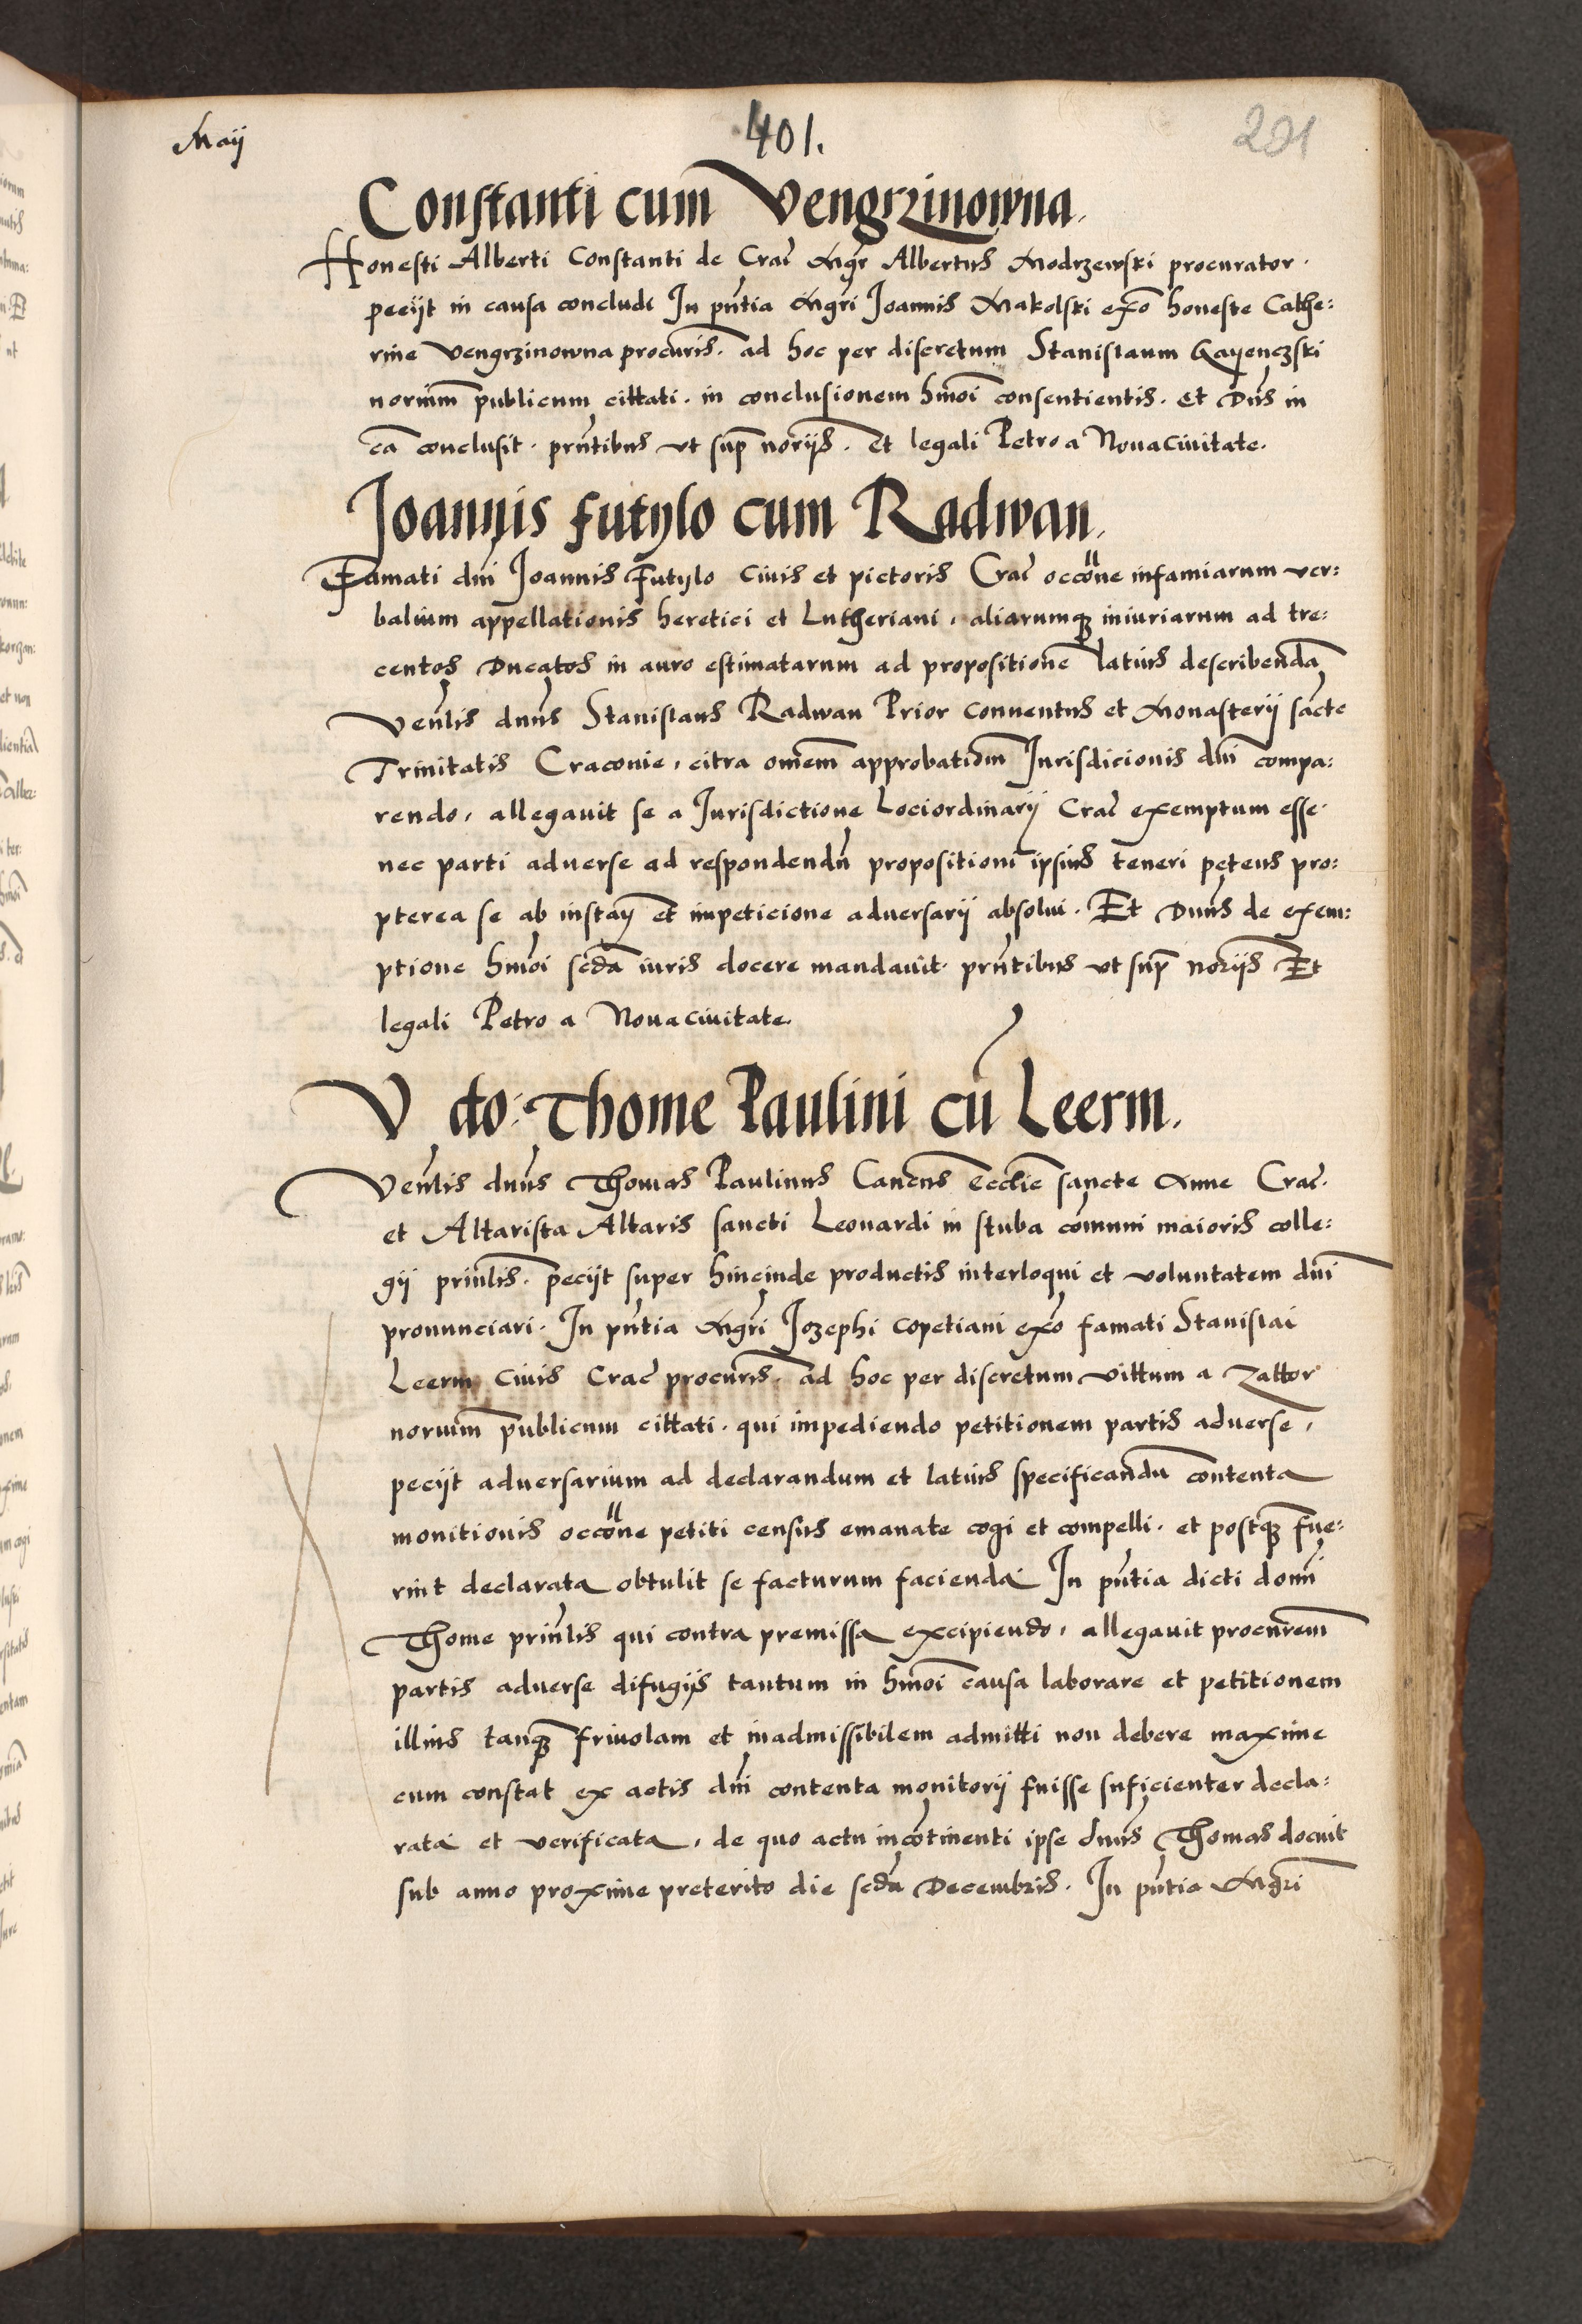 Maij
401.
201
Constanti cum Vengrzinowna.
Honesti Alberti Constanti de Crac̃ Mgr̃ Albertus Modrzewski procurator.
peciit in causa concludi In pñtia Mgri Joannis Makolski ex̃o honeste Cathe:
rine Vengrzinowna procuris. ad hoc per discretum Stanislaum Gayenczski
noriũm publicum cittati. in conclusionem hmõi consentientis. Et Dñs in
eã conclusit. pñtibus ut sup̃ noriis. Et legali Petro a Novacivitate.
Joannis futylo cum Radwan.
Famati dñi Joannis Futylo civis et pictoris Crac̃ occõne infamiarum ver:
balium appellationis heretici et Lutheriani, aliarumqꝫ iniuriarum ad tre:
centos Ducatos in auro estimatarum ad propositionẽ latius describendã
Veñlis dñus Stanislaus Radwan Prior conventus et Monasterij sãcte
Trinitatis Craconie, citra omẽm approbatiõm Jurisdicionis dñi compa:
rendo, allegavit se a Jurisdictione Lociordinarij Crac̃ exemptum esse
nec parti adverse ad respondendũ propositioni ipsius teneri petens pro:
pterea se ab instañ et impeticione adversarij absolvi. Et Dñus de exem:
ptione hmõi scđa iuris docere mandavit. pñtibus ut sup̃ noriis Et
legali Petro a Novacivitate.
V do: Thome Paulini cũ Leerm.
Veñlis dñus Thomas Paulinus Canõcus Ecclie sancte Anne Crac̃.
et Altarista Altaris sancti Leonardi in stuba cõmuni maioris colle:
gij prinlis. peciit super hincinde productis interloqui et voluntatem dñi
pronunciari. In pñtia Mgri Jozephi Copetiani exõ famati Stanislai
Leerm Civis Crac̃ procuris. ad hoc per discretum Vittum a Zattor
noriũm publicum cittati. qui impediendo petitionem partis adverse,
peciit adversarium ad declarandum et latius specificandũ contenta
monitionis occõne petiti census emanate cogi et compelli. et postqꝫ fue:
rint declarata obtulit se facturum facienda In pñtia dicti domi
Thome prinlis qui contra premissa excipiendo, allegavit procurẽm
partis adverse difugijs tantum in hmõi causa laborare et petitionem
illius tanqꝫ frivolam et inadmissibilem admitti non debere maxime
cum constat ex actis dñi contenta monitorij fuisse suficienter decla:
rata et verificata, de quo actu incõtinenti ipse dñus Thomas docuit
sub anno proxime preterito die scđa Decembris. In pñtia Mgri